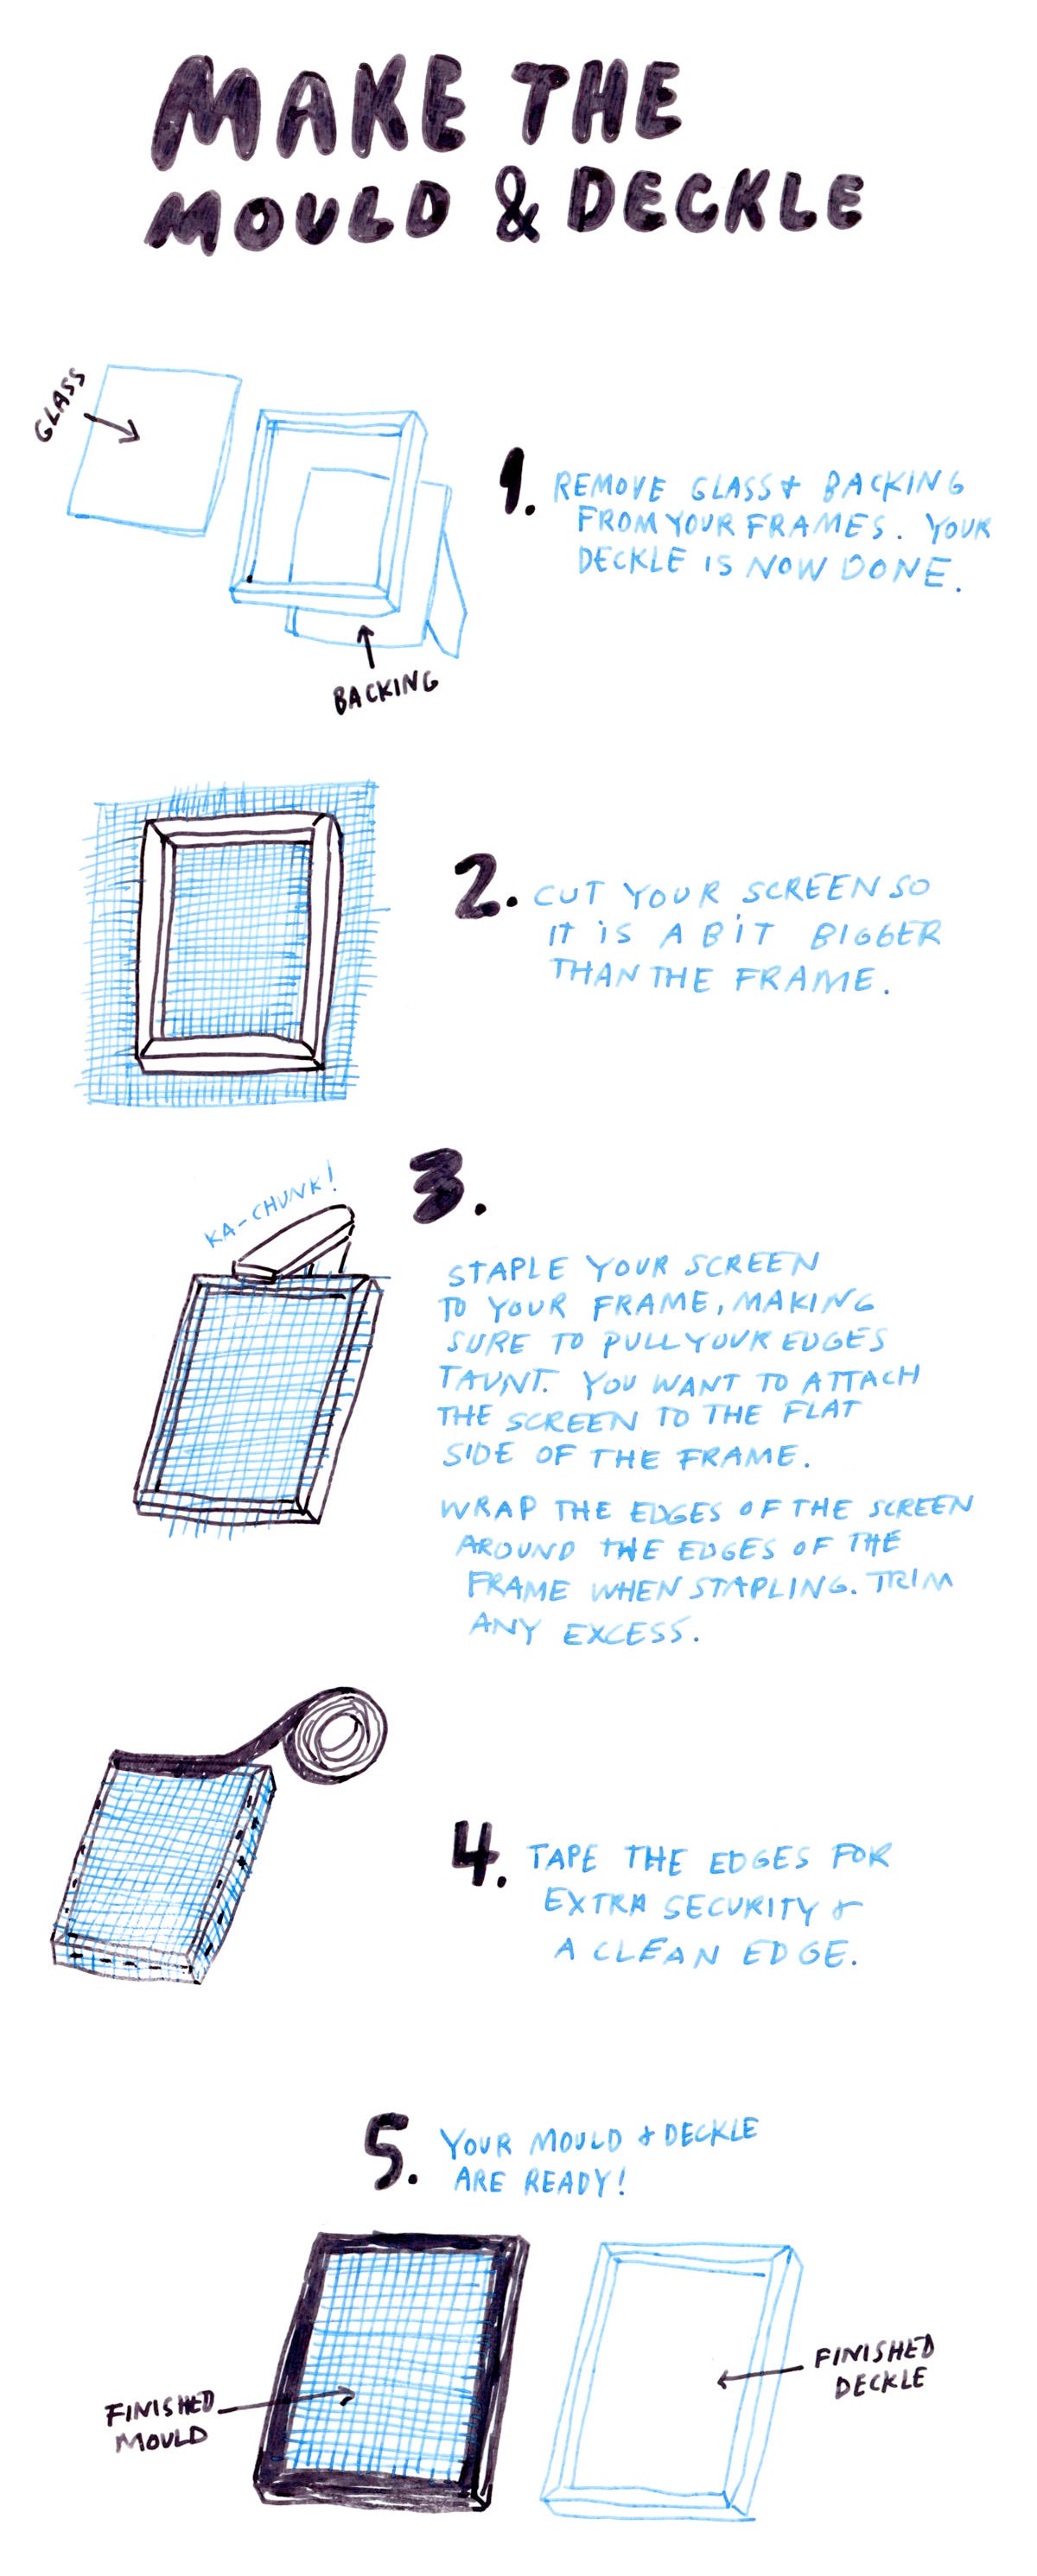 MAKE THE
MOULD & DECKLE
GLASS
BACKING
1. REMOVE GLASS & BACKING
FROM YOUR FRAMES. YOUR
DECKLE IS NOW DONE.
2. CUT YOUR SCREEN SO
IT IS A BIT BIGGER
THAN THE FRAME.
KA-CHUNK!
3.
STAPLE YOUR SCREEN
TO YOUR FRAME, MAKING
SURE TO PULL YOUR EDGES
TAUNT. YOU WANT TO ATTACH
THE SCREEN TO THE FLAT
SIDE OF THE FRAME.
WRAP THE EDGES OF THE SCREEN
AROUND THE EDGES OF THE
FRAME WHEN STAPLING. TRIM
ANY EXCESS.
4. TAPE THE EDGES FOR
EXTRA SECURITY &
A CLEAN EDGE.
5. YOUR MOULD & DECKLE
ARE READY!
FINISHED
MOULD
FINISHED
DECKLE